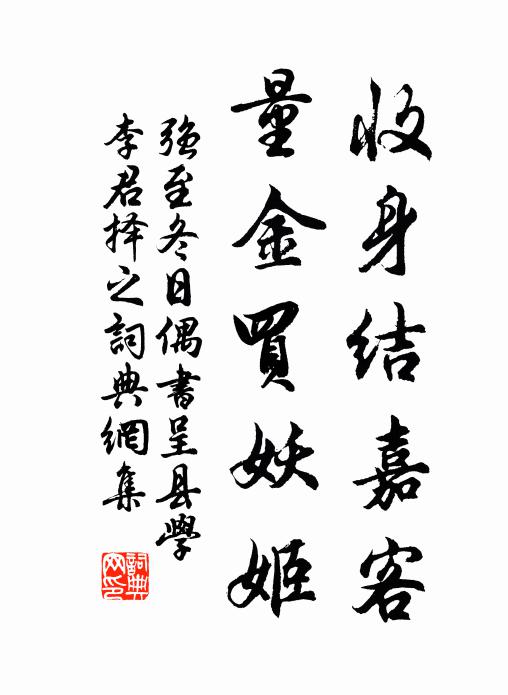 收身结嘉客
量金買妖姬
强至冬日偶書呈县學
李君择之詞典網集
詞典網印